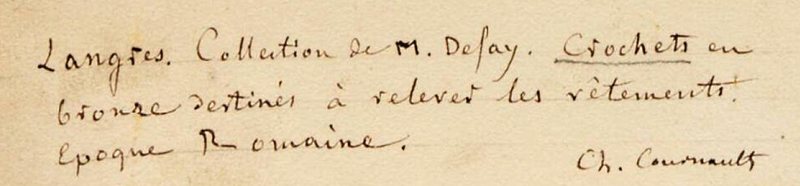 Langres. Collection de M. Defay. Crochets en
bronze destinés à relever les vêtements.
Epoque Romaine.
Ch. Cournault